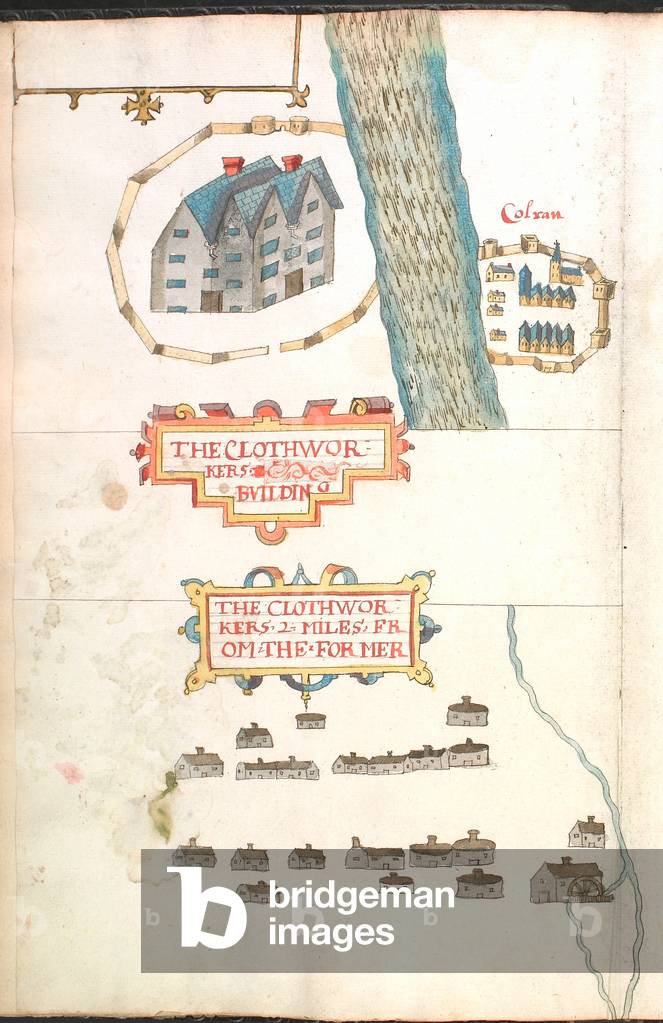 Colran
THE CLOTHWOR-
KERS:
BVILDING
THE CLOTHWOR-
KERS·2·MILES·FR
OM·THE·FORMER
b bridgeman
images
b
b
b